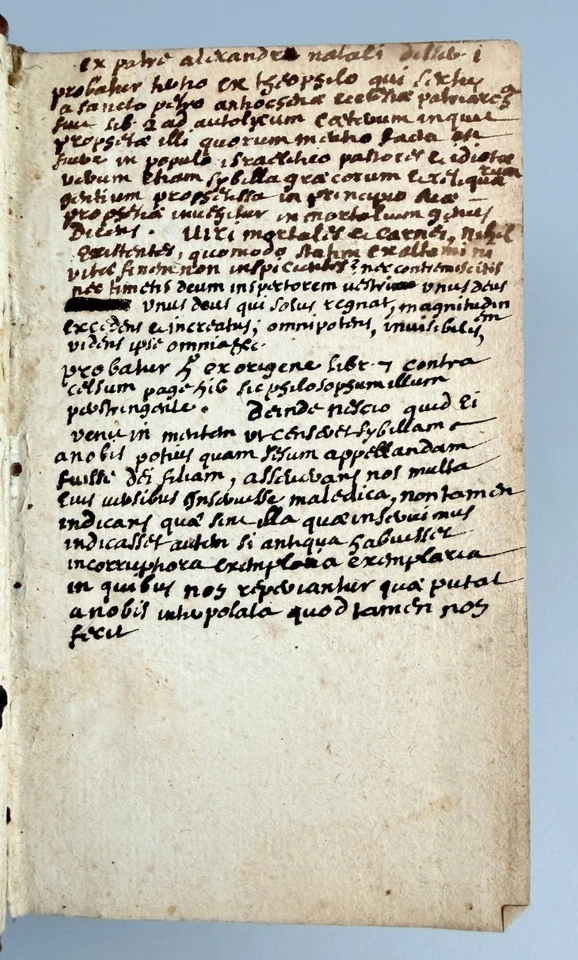 ex patre alexandro natali dissert i
probatur tertio ex theophilo qui sextus
a sancto petro antiochenae ecclesiae patriarcha
fuit lib 2 ad autolycum caeterum inquit
prophetae illi quorum mentio facta est
fuere in populo israelitico pastores et idiotae
verum etiam sybilla graecorum et reliquarum
gentium prophetissa in principio suae
prophetiae invehitur in mortalium genus
Dicens . Viri mortales et carnei, nihil
existentes, quomodo statim exaltamini
vitae finem non inspicientes? nec contremiscitis
nec timetis deum inspectorem vestrum unus deus
unus deus qui solus regnat, magnitudinem
excedens et increatus, omnipotens, invisibilis,
videns ipse omnia &c.
probatur 4 ex origene libr 7 contra
celsum page hic sic philosophum illum
perstringente . Deinde nescio quid ei
venit in mentem ut censeret sybillam
a nobis potius quam jesum appellandam
fuisse dei filiam, asseverans nos multa
eius versibus inseruisse maledica, non tamen
indicans quae sint illa quae inserui mus
indicasset autem si antiqua habuisset
incorruptiora exemplaria
in quibus non reperiantur quae putat
a nobis interpolata quod tamen non
fecit